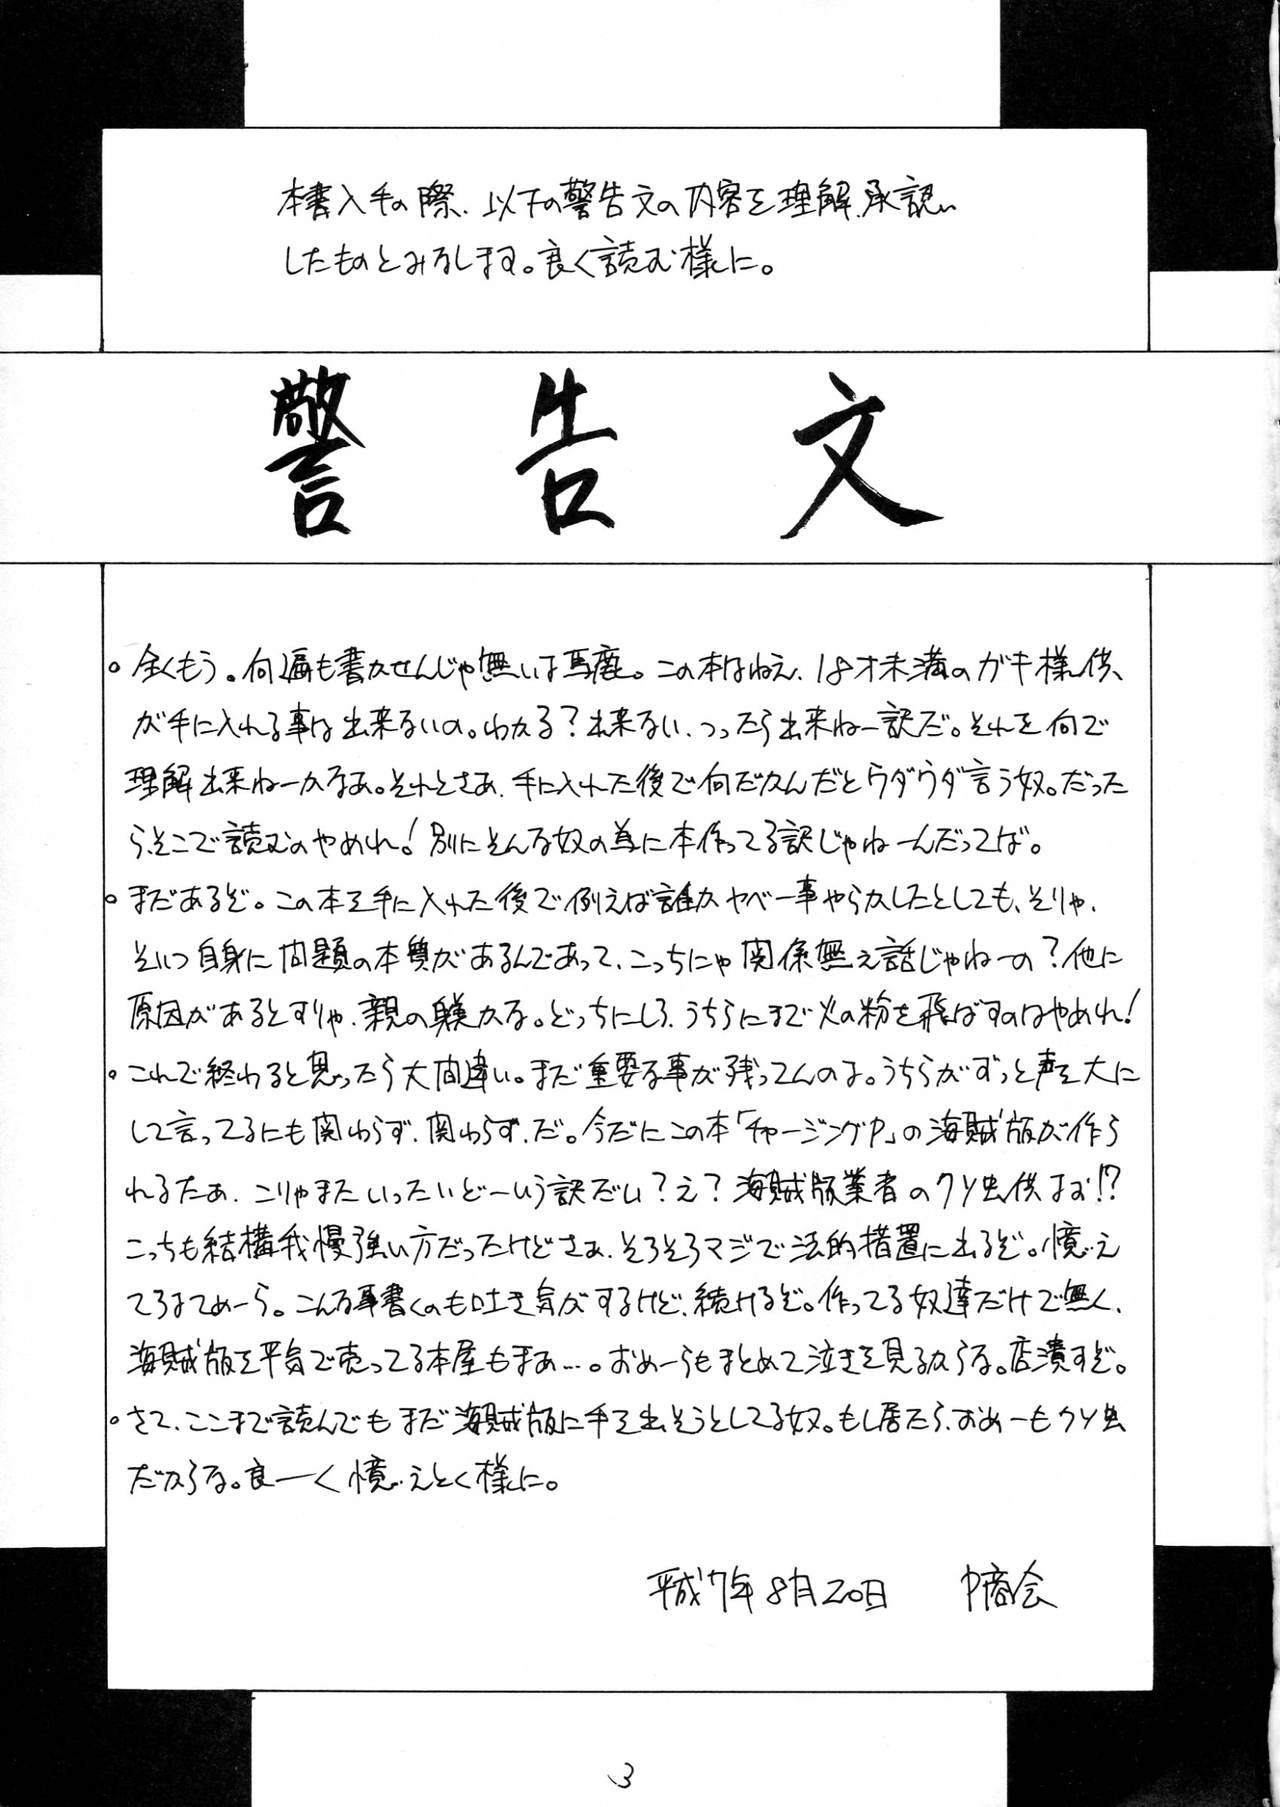 本書入手の際、以下の警告文の内容を理解、承認い
したものとみなします。良く読む様に。
警告文
。全くもう。何遍も書かせんじゃ無いよ馬鹿。この本はねえ、18才未満のガキ様供、
が手に入れる事は出来ないの。わかる？出来ない、つったら出来ねー訳だ。それを何で
理解出来ねーかなあ。それとさあ、手に入れた後で何だかんだとウダウダ言う奴。だった
ら、そこで読むのやめれ！別にそんな奴の為に本作ってる訳じゃねーんだってば。
。まだあるぞ。この本を手に入れた後で例えば誰かヤベー事やらかしたとしても、そりゃ、
そいつ自身に問題の本質があるんであって、こっちにゃ関係無え話じゃねーの？他に
原因があるとすりゃ、親の躾かな。どっちにしろ、うちらにまで火の粉を飛ばすのはやめれ！
。これで終わると思ったら大間違い。まだ重要な事が残ってんのよ。うちらがずっと声を大に
して言ってるにも関わらず、関わらず、だ。今だにこの本「チャージングP」の海賊版が作ら
れるたあ、こりゃまたいったいどーいう訳だい？え？海賊版業者のクソ虫供よお!?
こっちも結構我慢強い方だったけどさぁ、そろそろマジで法的措置に出るぞ。憶え
てろよてめーら。こんな事書くのも吐き気がするけど、続けるぞ。作ってる奴達だけで無く、
海賊版を平気で売ってる本屋もまぁ…。おめーらもまとめて泣きを見るからな。店潰すぞ。
。さて、ここまで読んでもまだ海賊版に手を出そうとしてる奴。もし居たら、おめーもクソ虫
だからな。良ーく憶えとく様に。
平成7年8月20日 P商会
3